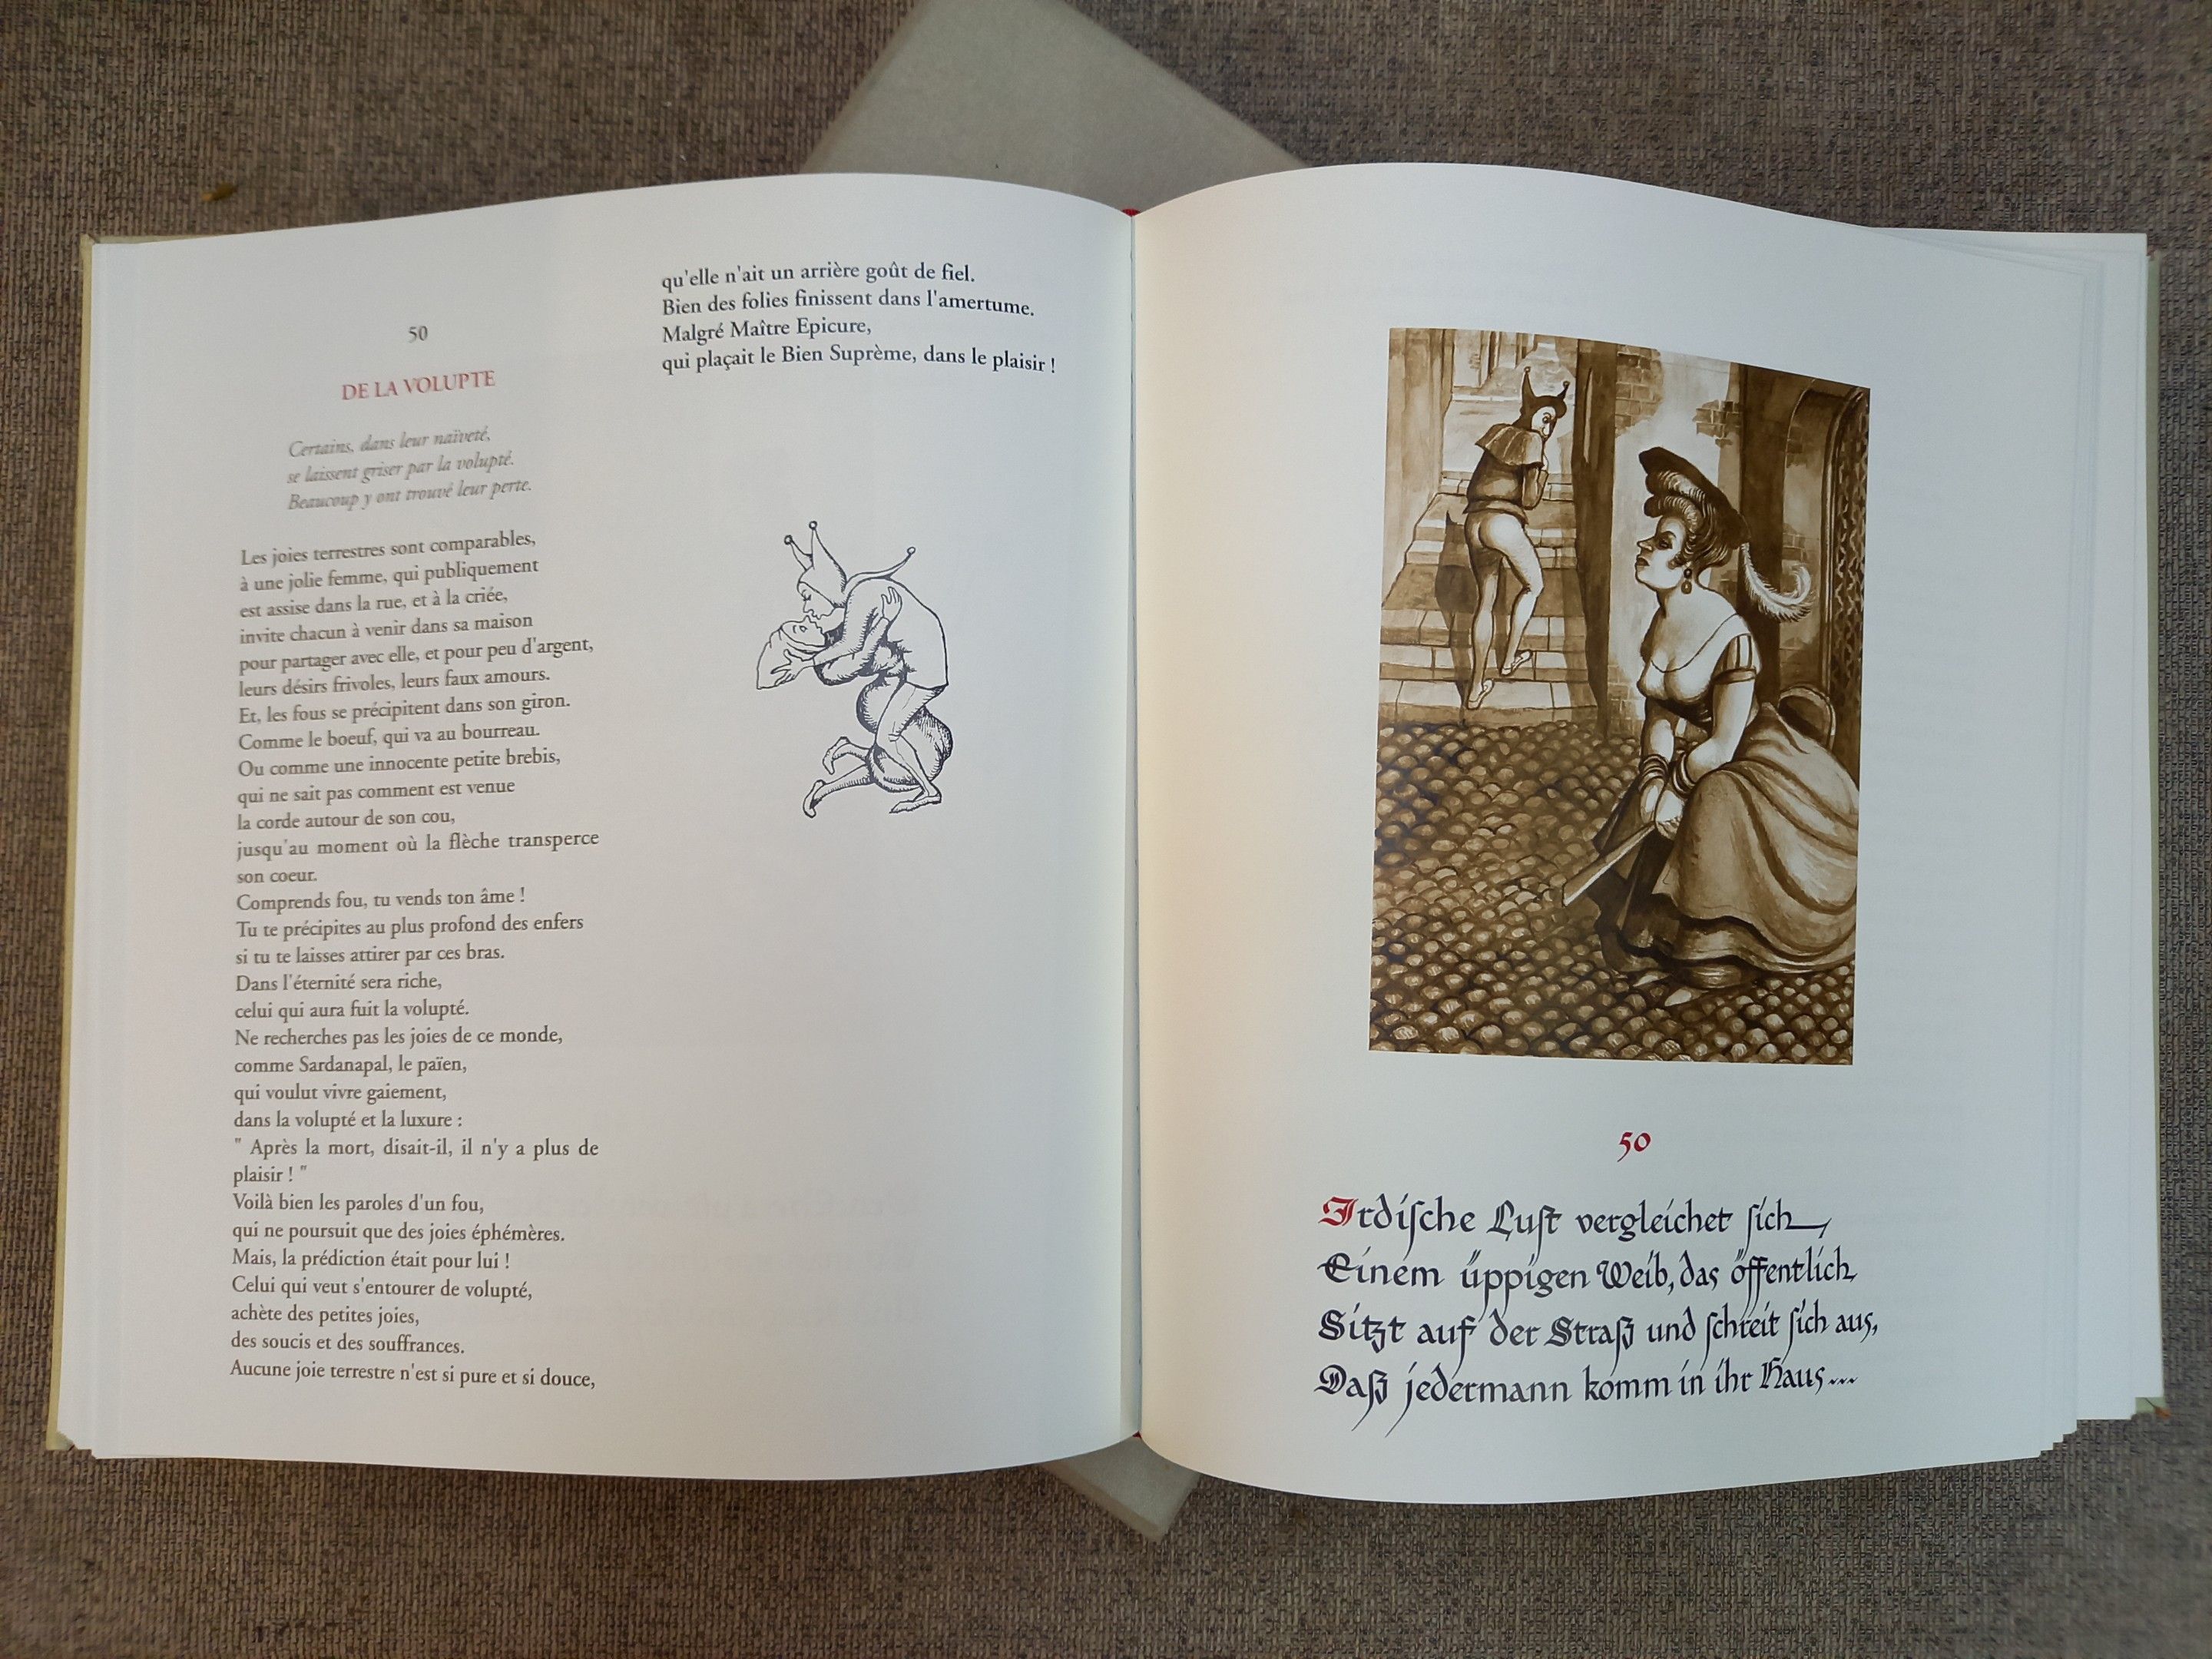 50
DE LA VOLUPTE
Certains, dans leur naïveté,
se laissent griser par la volupté.
Beaucoup y ont trouvé leur perte.
Les joies terrestres sont comparables,
à une jolie femme, qui publiquement
est assise dans la rue, et à la criée,
invite chacun à venir dans sa maison
pour partager avec elle, et pour peu d'argent,
leurs désirs frivoles, leurs faux amours.
Et, les fous se précipitent dans son giron.
Comme le boeuf, qui va au bourreau.
Ou comme une innocente petite brebis,
qui ne sait pas comment est venue
la corde autour de son cou,
jusqu'au moment où la flèche transperce
son coeur.
Comprends fou, tu vends ton âme !
Tu te précipites au plus profond des enfers
si tu te laisses attirer par ces bras.
Dans l'éternité sera riche,
celui qui aura fuit la volupté.
Ne recherches pas les joies de ce monde,
comme Sardanapal, le païen,
qui voulut vivre gaiement,
dans la volupté et la luxure :
" Après la mort, disait-il, il n'y a plus de
plaisir ! "
Voilà bien les paroles d'un fou,
qui ne poursuit que des joies éphémères.
Mais, la prédiction était pour lui !
Celui qui veut s'entourer de volupté,
achète des petites joies,
des soucis et des souffrances.
Aucune joie terrestre n'est si pure et si douce,
qu'elle n'ait un arrière goût de fiel.
Bien des folies finissent dans l'amertume.
Malgré Maître Epicure,
qui plaçait le Bien Suprème, dans le plaisir !
50
Irdische Lust vergleichet sich,
Einem üppigen Weib, das öffentlich
Sitzt auf der Straß und schreit sich aus,
Daß jedermann komm in ihr Haus...